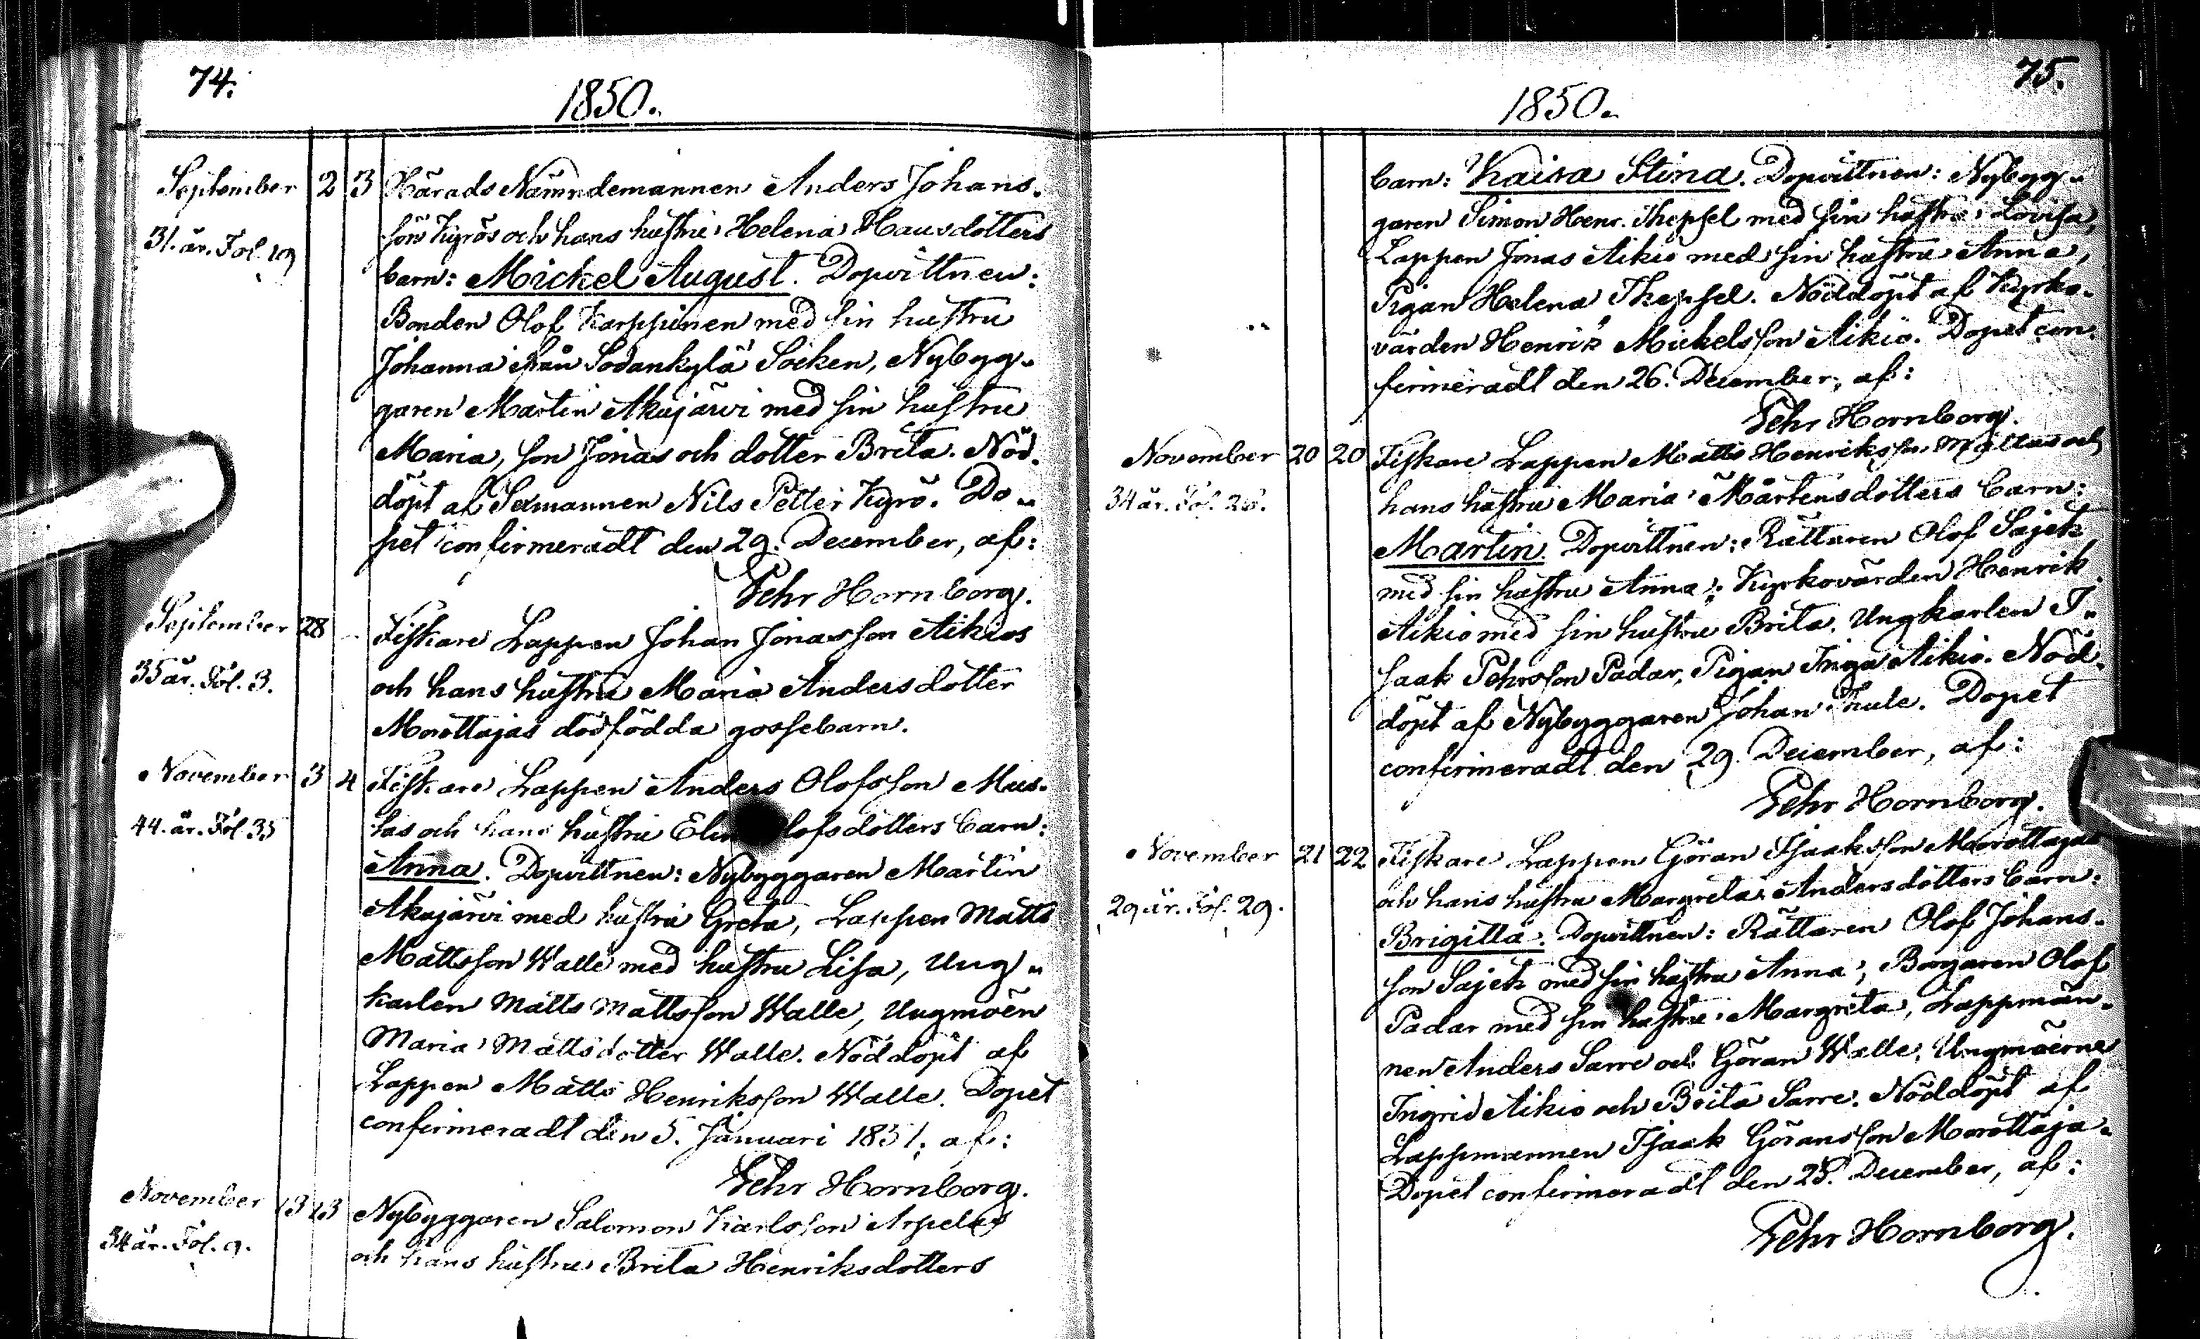 74.
1850.
September 2 3 Härads Nämndemannen Anders Johans-
31. år. Fol. 19 son Kyrös och hans hustru Helena Hansdotters
barn: Mickel August. Dopvittnen:
Bonden Olof Karppinen med sin hustru
Johanna ifrån Sodankylä Socken, Nybygg-
garen Martin Akujärvi med sin hustru
Maria, son Jonas och dotter Brita. Nöd-
döpt af Sexmannen Nils Petter Kyrö. Do-
pet confirmeradt den 29. December, af:
Pehr Hornborg.
September 28 - Fiskare Lappen Johan Jonasson Aikios
35 år. Fol. 3. och hans hustru Maria Andersdotter
Morottajas dödfödda gossebarn.
November 3 4 Fiskare Lappen Anders Olofsson Mus-
44. år. Fol. 35 tas och hans hustru Olofsdotters barn:
Anna. Dopvittnen: Nybyggaren Martin
Akujärvi med hustru Greta, Lappen Matts
Mattsson Walle med hustru Lisa, Ung-
karlen Matts Mattsson Walle, Ungmöen
Maria Mattsdotter Walle. Nöddöpt af
Lappen Matts Henriksson Walle. Dopet
confirmeradt den 5. Januari 1851. af:
Pehr Hornborg.
November 13 13 Nybyggaren Salomon Karlsson Arpelas
34 år. Fol. 9. och hans hustru Brita Henriksdotters
75.
1850.
barn: Kaisa Stina. Dopvittnen: Nybygg-
garen Simon Henr. Thepsel med sin hustru Lovisa,
Lappen Jonas Aikio med sin hustru Anna,
Pigan Helena Thepsel. Nöddöpt af Kyrko-
värden Henrik Mickelsson Aikio. Dopet con-
firmeradt den 26. December, af:
Pehr Hornborg.
November 20 20 Fiskare Lappen Matts Henriksson och
34 år. Fol. 28. hans hustru Maria Mårtensdotters barn:
Martin. Dopvittnen: Rättaren Olof Sajek
med sin hustru Anna; Kyrkovärden Henrik
Aikio med sin hustru Brita. Ungkarlen I-
saak Pehrsson Padar, Pigan Inga Aikio. Nöd-
döpt af Nybyggaren Johan Thule. Dopet
confirmeradt den 29. December, af:
Pehr Hornborg.
November 21 22 Fiskare Lappen Göran Isaaksson Morottajas
29 år. Fol. 29. och hans hustru Margreta Andersdotters barn:
Brigitta. Dopvittnen: Rättaren Olof Johans-
son Sajek med sin hustru Anna, Borgaren Olof
Padar med sin hustru Margreta, Lappmän-
nen Anders Sarre och Göran Walle, Ungmöerne
Ingrid Aikio och Brita Sarre. Nöddöpt af
Lappmannen Isaak Göransson Morottaja.
Dopet confirmeradt den 25. December, af:
Pehr Hornborg.